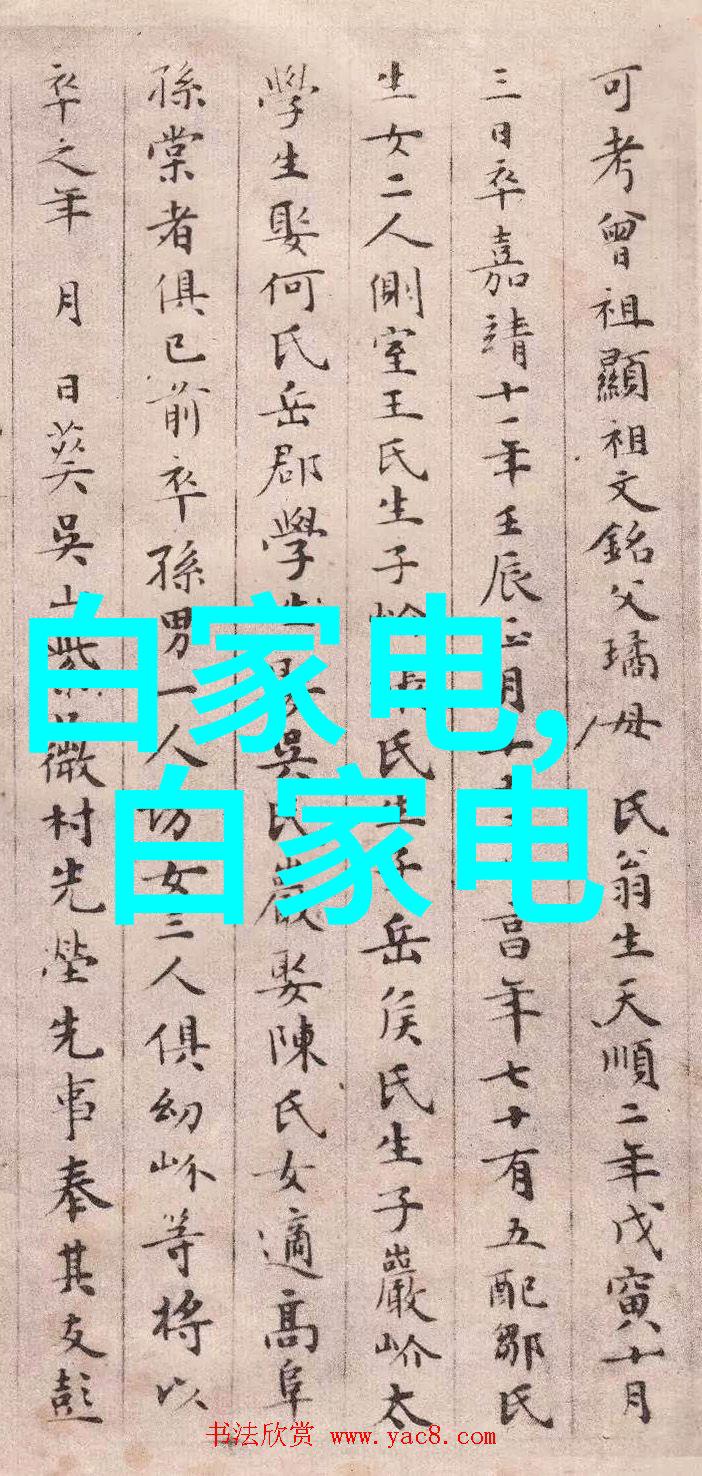 可考曾祖顯祖文銘父璚母 氏翁生天順二年戊寅十月
三日卒嘉靖十一年壬辰正月十 享年七十有五配鄒氏
生女二人側室王氏生子岎 氏生子岳侯氏生子巖岎太
學生娶何氏岳郡學生娶吳氏巖娶陳氏女適高阜
孫棠者俱已前卒孫男一人 女三人俱幼岎等將以
卒之年 月 日葬吳山 薇村先塋先事奉其友彭
白家电,
白家电
书法欣赏 www.yac8.com